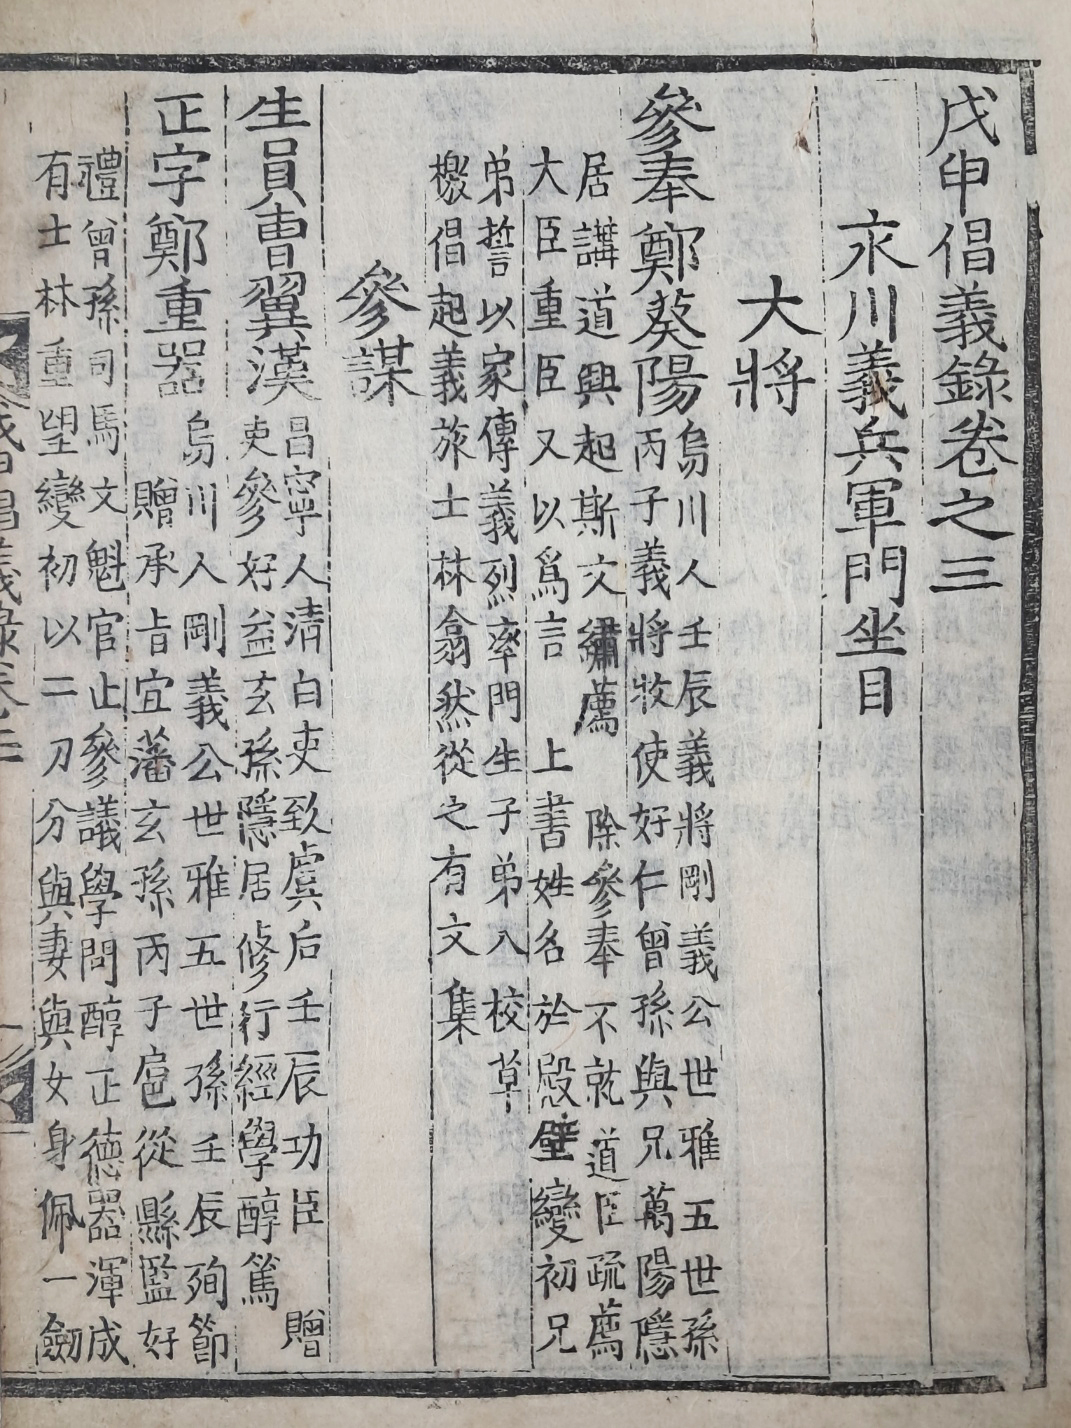 戊申倡義錄卷之三
永川義兵軍門坐目
大將
參奉鄭葵陽
烏川人壬辰義將剛義公世雅五世孫
丙子義將牧使好仁曾孫與兄萬陽隱
居講道興起斯文繡薦 除參奉不就道臣疏薦
大臣重臣又以爲言 上書姓名於殿壁變初兄
弟誓以家傳義烈率門生子弟入校草
檄倡起義旅士林翕然從之有文集
參謀
生員曺翼漢
昌寧人清白吏致虞后壬辰功臣 贈
吏參好益玄孫隱居修行經學醇篤
正字鄭重器
烏川人剛義公世雅五世孫壬辰殉節
贈承旨宜藩玄孫丙子扈從縣監好
禮曾孫司馬文魁官止參議學問醇正德器渾成
有士林重望變初以二刀分與妻與女身佩一劒